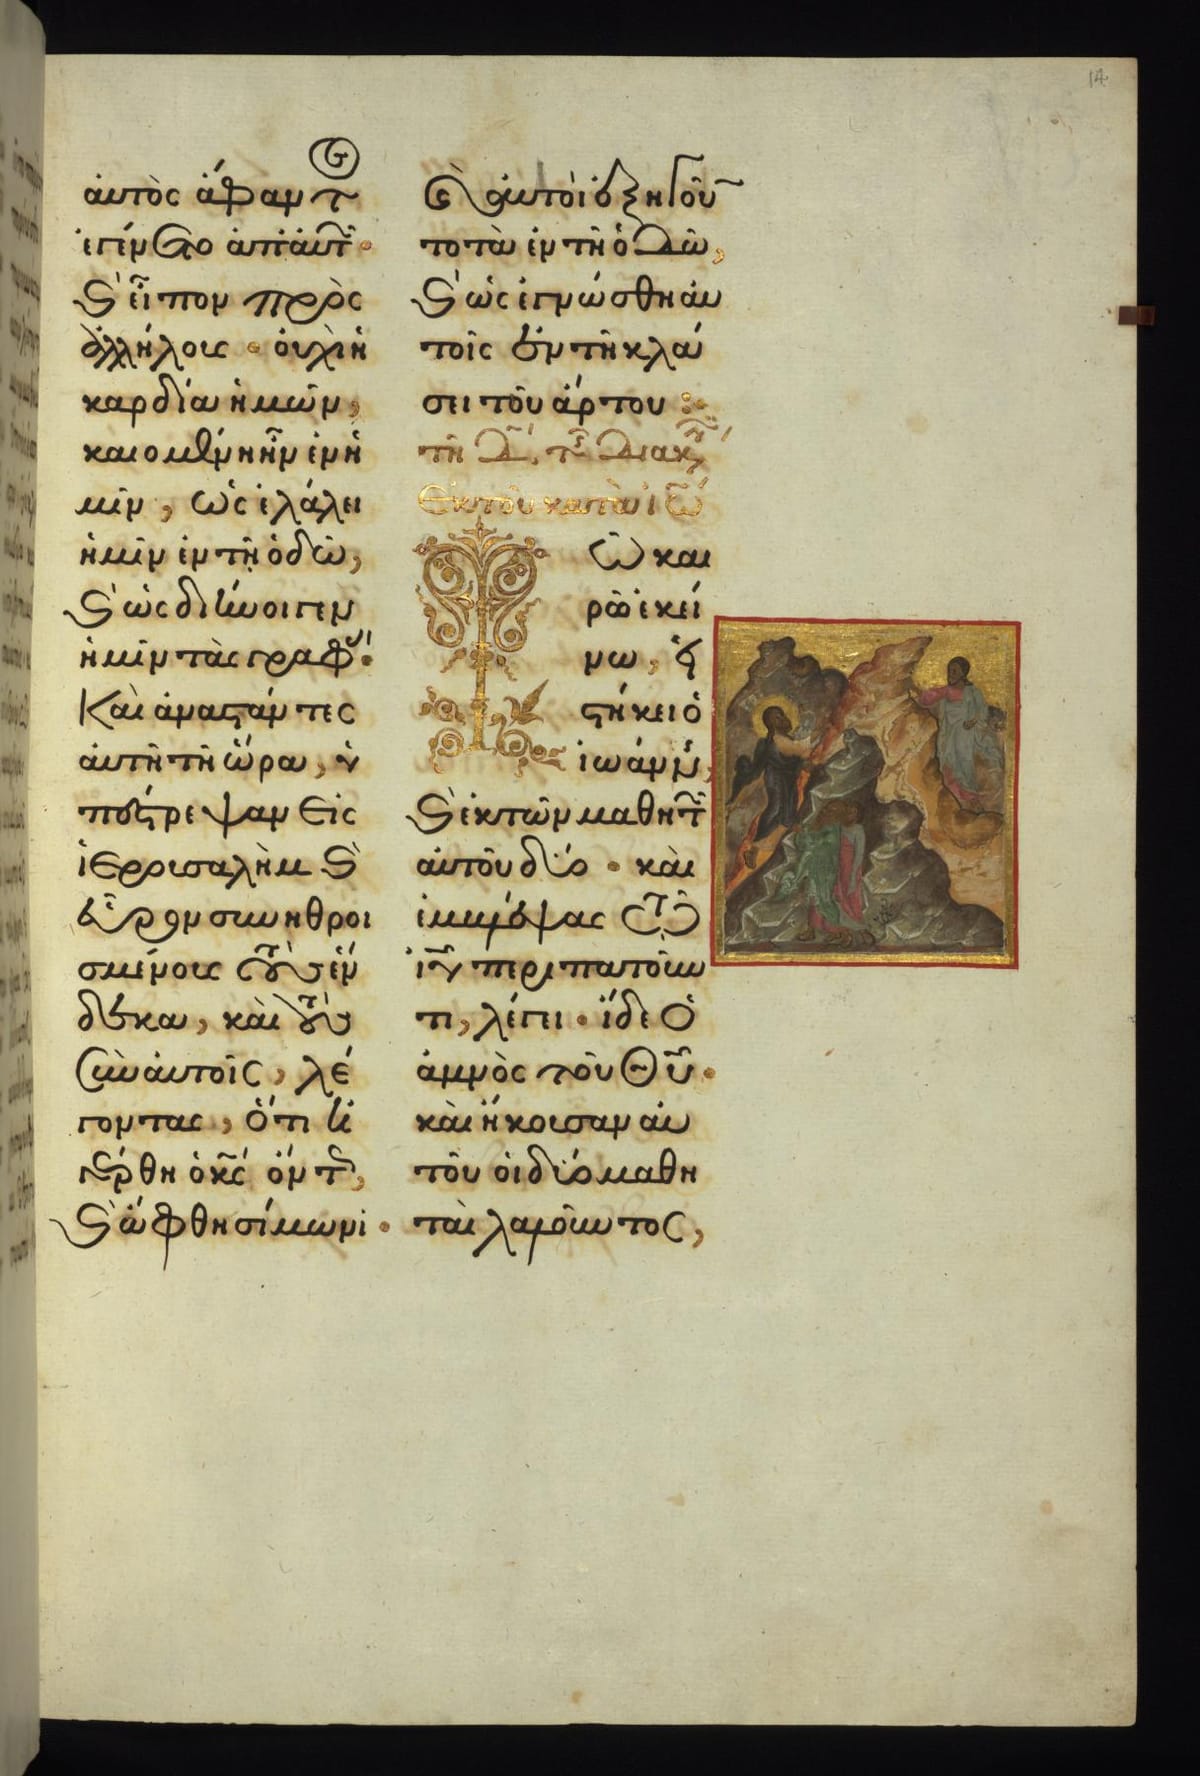 14
ε
αὐτὸς ἄφαντ
ἐγένετο ἀπ' αὐτ.
ϗ εἶπον πρὸς
ἀλλήλους · οὐχὶ ἡ
καρδία ἡμῶν,
καιομένη ἦν ἐν ἡ
μῖν, ὡς ἐλάλει
ἡμῖν ἐν τῇ ὁδῶ,
ϗ ὡς διήνοιγεν
ἡμῖν τὰς γραφ.
Καὶ ἀναστάντες
αὐτῆ τῆ ὥρα, ὑ
πέστρεψαν εἰς
ἱερουσαλὴμ ϗ
εὗρον συνηθροι
σμένους τοὺς ἕν
δεκα, καὶ τοὺς
σὺν αὐτοῖς, λέ
γοντας, ὅτι ἠ
γέρθη ὁ κς ὄντ,
ϗ ὤφθη σίμωνι ·
ϗ αὐτοὶ ἐξηγοῦν
το τὰ ἐν τῆ ὁδῶ,
ϗ ὡς ἐγνώσθη αὐ
τοῖς ἐν τῆ κλά
σει τοῦ ἄρτου :
τῆ Δ, τ διακ
ἐκ τοῦ κατὰ ἰω
Τῶ και
ρῶ ἐκεί
νω, εἱ
στήκει ὁ
ἰωάνν,
ϗ ἐκ τῶν μαθητ
αὐτοῦ δύο · καὶ
ἐμβλέψας τῶ
ιυ περιπατοῦν
τι, λέγει · ἴδε ὁ
ἀμνὸς τοῦ θυ.
καὶ ἤκουσαν αὐ
τοῦ οἱ δύο μαθη
ταὶ λαλοῦντος,